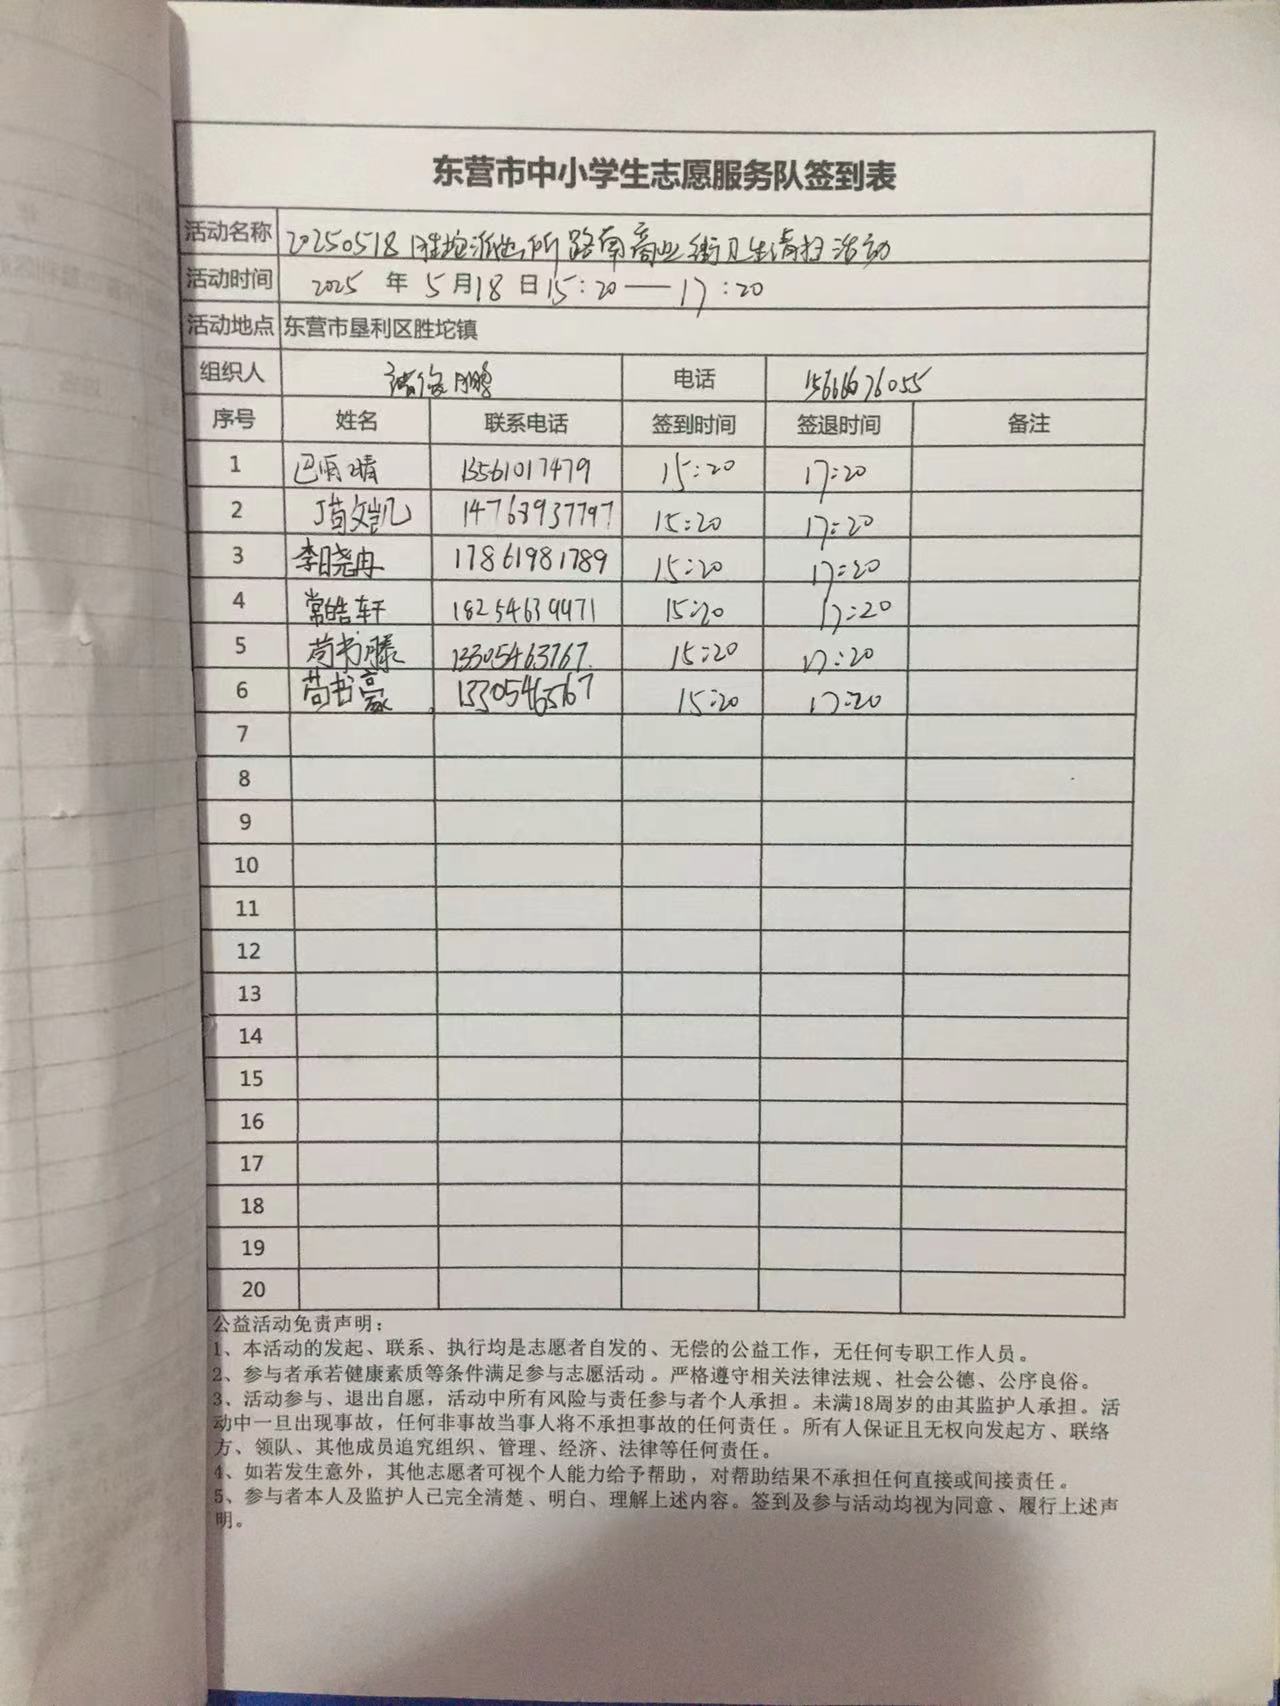 东营市中小学生志愿服务队签到表
活动名称 20250518胜坨派出所路南商业街卫生清扫活动
活动时间 2025 年 5月18 日15:20—17:20
活动地点 东营市垦利区胜坨镇
组织人 电话 15666676055
序号 姓名 联系电话 签到时间 签退时间 备注
1 巴雨晴 13561017479 15:20 17:20
2 苟文凯 14768937797 15:20 17:20
3 李晓冉 17861981789 15:20 17:20
4 常皓轩 18254639971 15:20 17:20
5 苟书滕 13305463767. 15:20 17:20
6 苟书豪 15:20 17:20
7
8
9
10
11
12
13
14
15
16
17
18
19
20
公益活动免责声明：
1、本活动的发起、联系、执行均是志愿者自发的、无偿的公益工作，无任何专职工作人员。
2、参与者承若健康素质等条件满足参与志愿活动。严格遵守相关法律法规、社会公德、公序良俗。
3、活动参与、退出自愿，活动中所有风险与责任参与者个人承担。未满18周岁的由其监护人承担。活
动中一旦出现事故，任何非事故当事人将不承担事故的任何责任。所有人保证且无权向发起方、联络
方、领队、其他成员追究组织、管理、经济、法律等任何责任。
4、如若发生意外，其他志愿者可视个人能力给予帮助，对帮助结果不承担任何直接或间接责任。
5、参与者本人及监护人已完全清楚、明白、理解上述内容。签到及参与活动均视为同意、履行上述声
明。